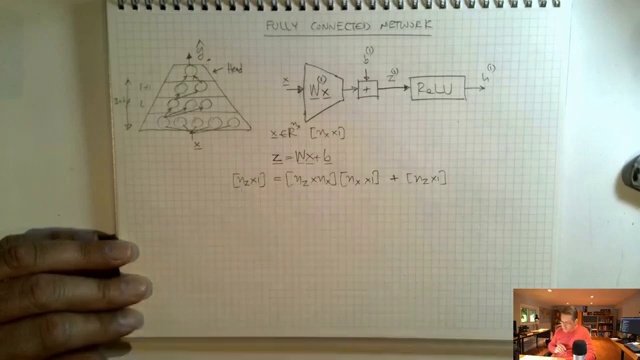 FULLY CONNECTED NETWORK
ŷ
Head
l+1
l
x
x
W^(1) x
b^(1)
+
z^(1)
ReLU
h^(1)
x ∈ R^nx [nx x 1]
z = Wx + b
[nz x 1] = [nz x nx] [nx x 1] + [nz x 1]